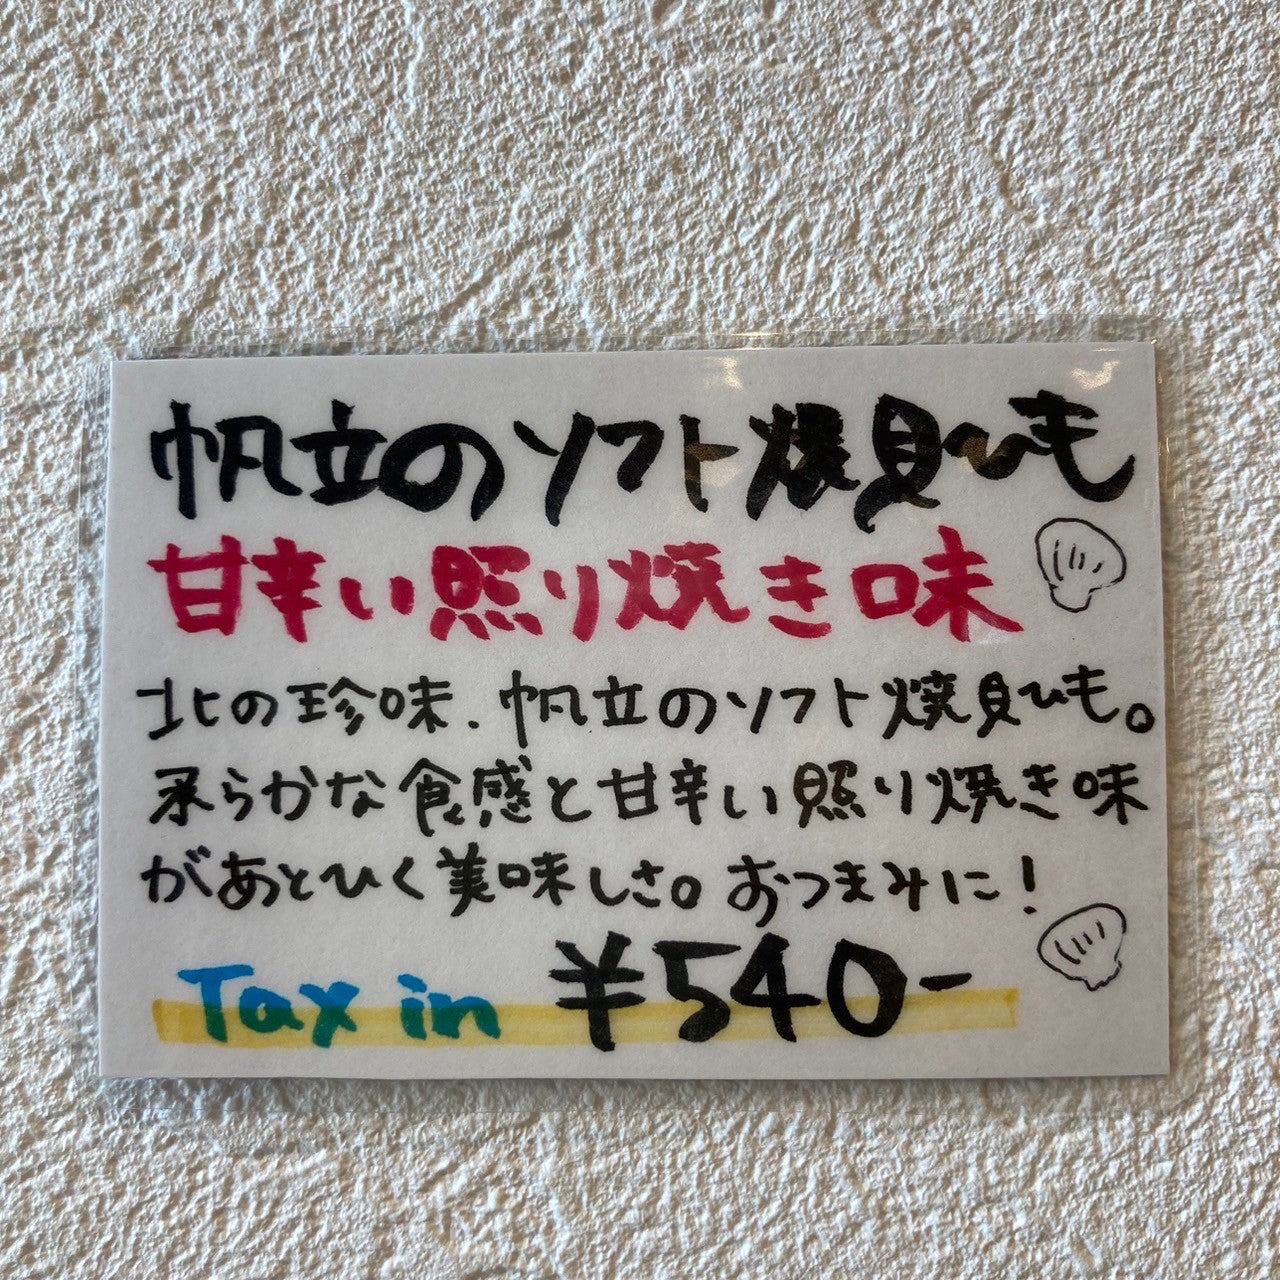 帆立のソフト燻貝ひも
甘辛い照り焼き味
北の珍味、帆立のソフト燻貝ひも。
柔らかな食感と甘辛い照り焼き味
があとひく美味しさ。おつまみに!
Tax in ¥540-